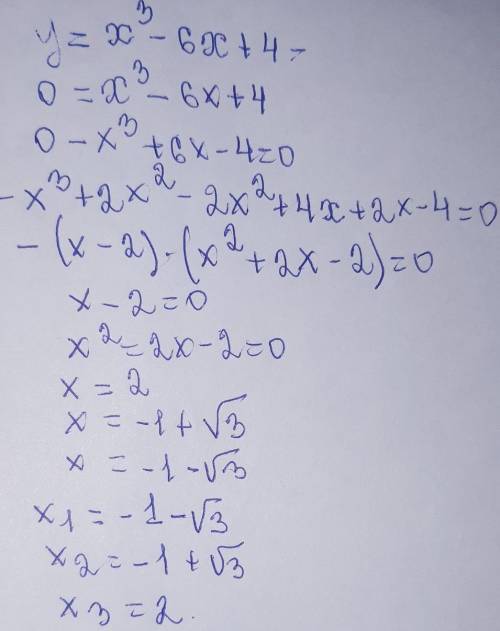 y = x³ - 6x + 4 -
0 = x³ - 6x + 4
0 - x³ + 6x - 4 = 0
- x³ + 2x² - 2x² + 4x + 2x - 4 = 0
- (x - 2) · (x² + 2x - 2) = 0
x - 2 = 0
x² = 2x - 2 = 0
x = 2
x = -1 + √3
x = -1 - √3
x1 = -1 - √3
x2 = -1 + √3
x3 = 2.